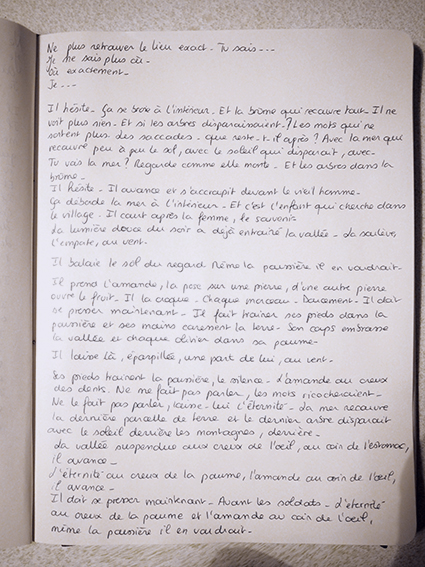 Ne plus retrouver le lieu exact - Tu sais ---
Je ne sais plus où -
Où exactement -
Je ---
Il hésite - Ça se brise à l'intérieur - Et la brûme qui recouvre tout - Il ne
voit plus rien - Et si les arbres disparaissaient - ? Les mots qui ne
sortent plus des saccades - que reste-t-il après ? Avec la mer qui
recouvre peu à peu le sol, avec le soleil qui disparait, avec -
Tu vois la mer ? Regarde comme elle monte - Et les arbres dans la
brûme -
Il hésite - Il avance et s'accroupit devant le vieil homme -
Ça déborde la mer à l'intérieur - Et c'est l'enfant qui cherche dans
le village - Il court après la femme, le souvenir -
La lumière douce du soir a déjà entrainé la vallée - La soulève,
l'emporte, au vent -
Il balaie le sol du regard. Même la poussière il en voudrait -
Il prend l'amande, la pose sur une pierre, d'une autre pierre
ouvre le fruit - Il la croque - Chaque morceau - Doucement - Il doit
se presser maintenant - Il fait trainer ses pieds dans la
poussière et ses mains caressent la terre - Son corps embrasse
la vallée et chaque olivier dans sa paume -
Il laisse là, éparpillée, une part de lui, au vent -
Ses pieds trainent la poussière, le silence - L'amande au creux
des dents. Ne me fait pas parler, les mots ricocheraient -
Ne le fait pas parler, laisse-lui l'éternité - La mer recouvre
la dernière parcelle de terre et le dernier arbre disparait
avec le soleil derrière les montagnes, derrière -
La vallée suspendue aux creux de l'oeil, au coin de l'estomac,
il avance -
L'éternité au creux de la paume, l'amande au coin de l'oeil,
il avance -
Il doit se presser maintenant - Avant les soldats - L'éternité
au creux de la paume et l'amande au coin de l'oeil,
même la poussière il en voudrait -